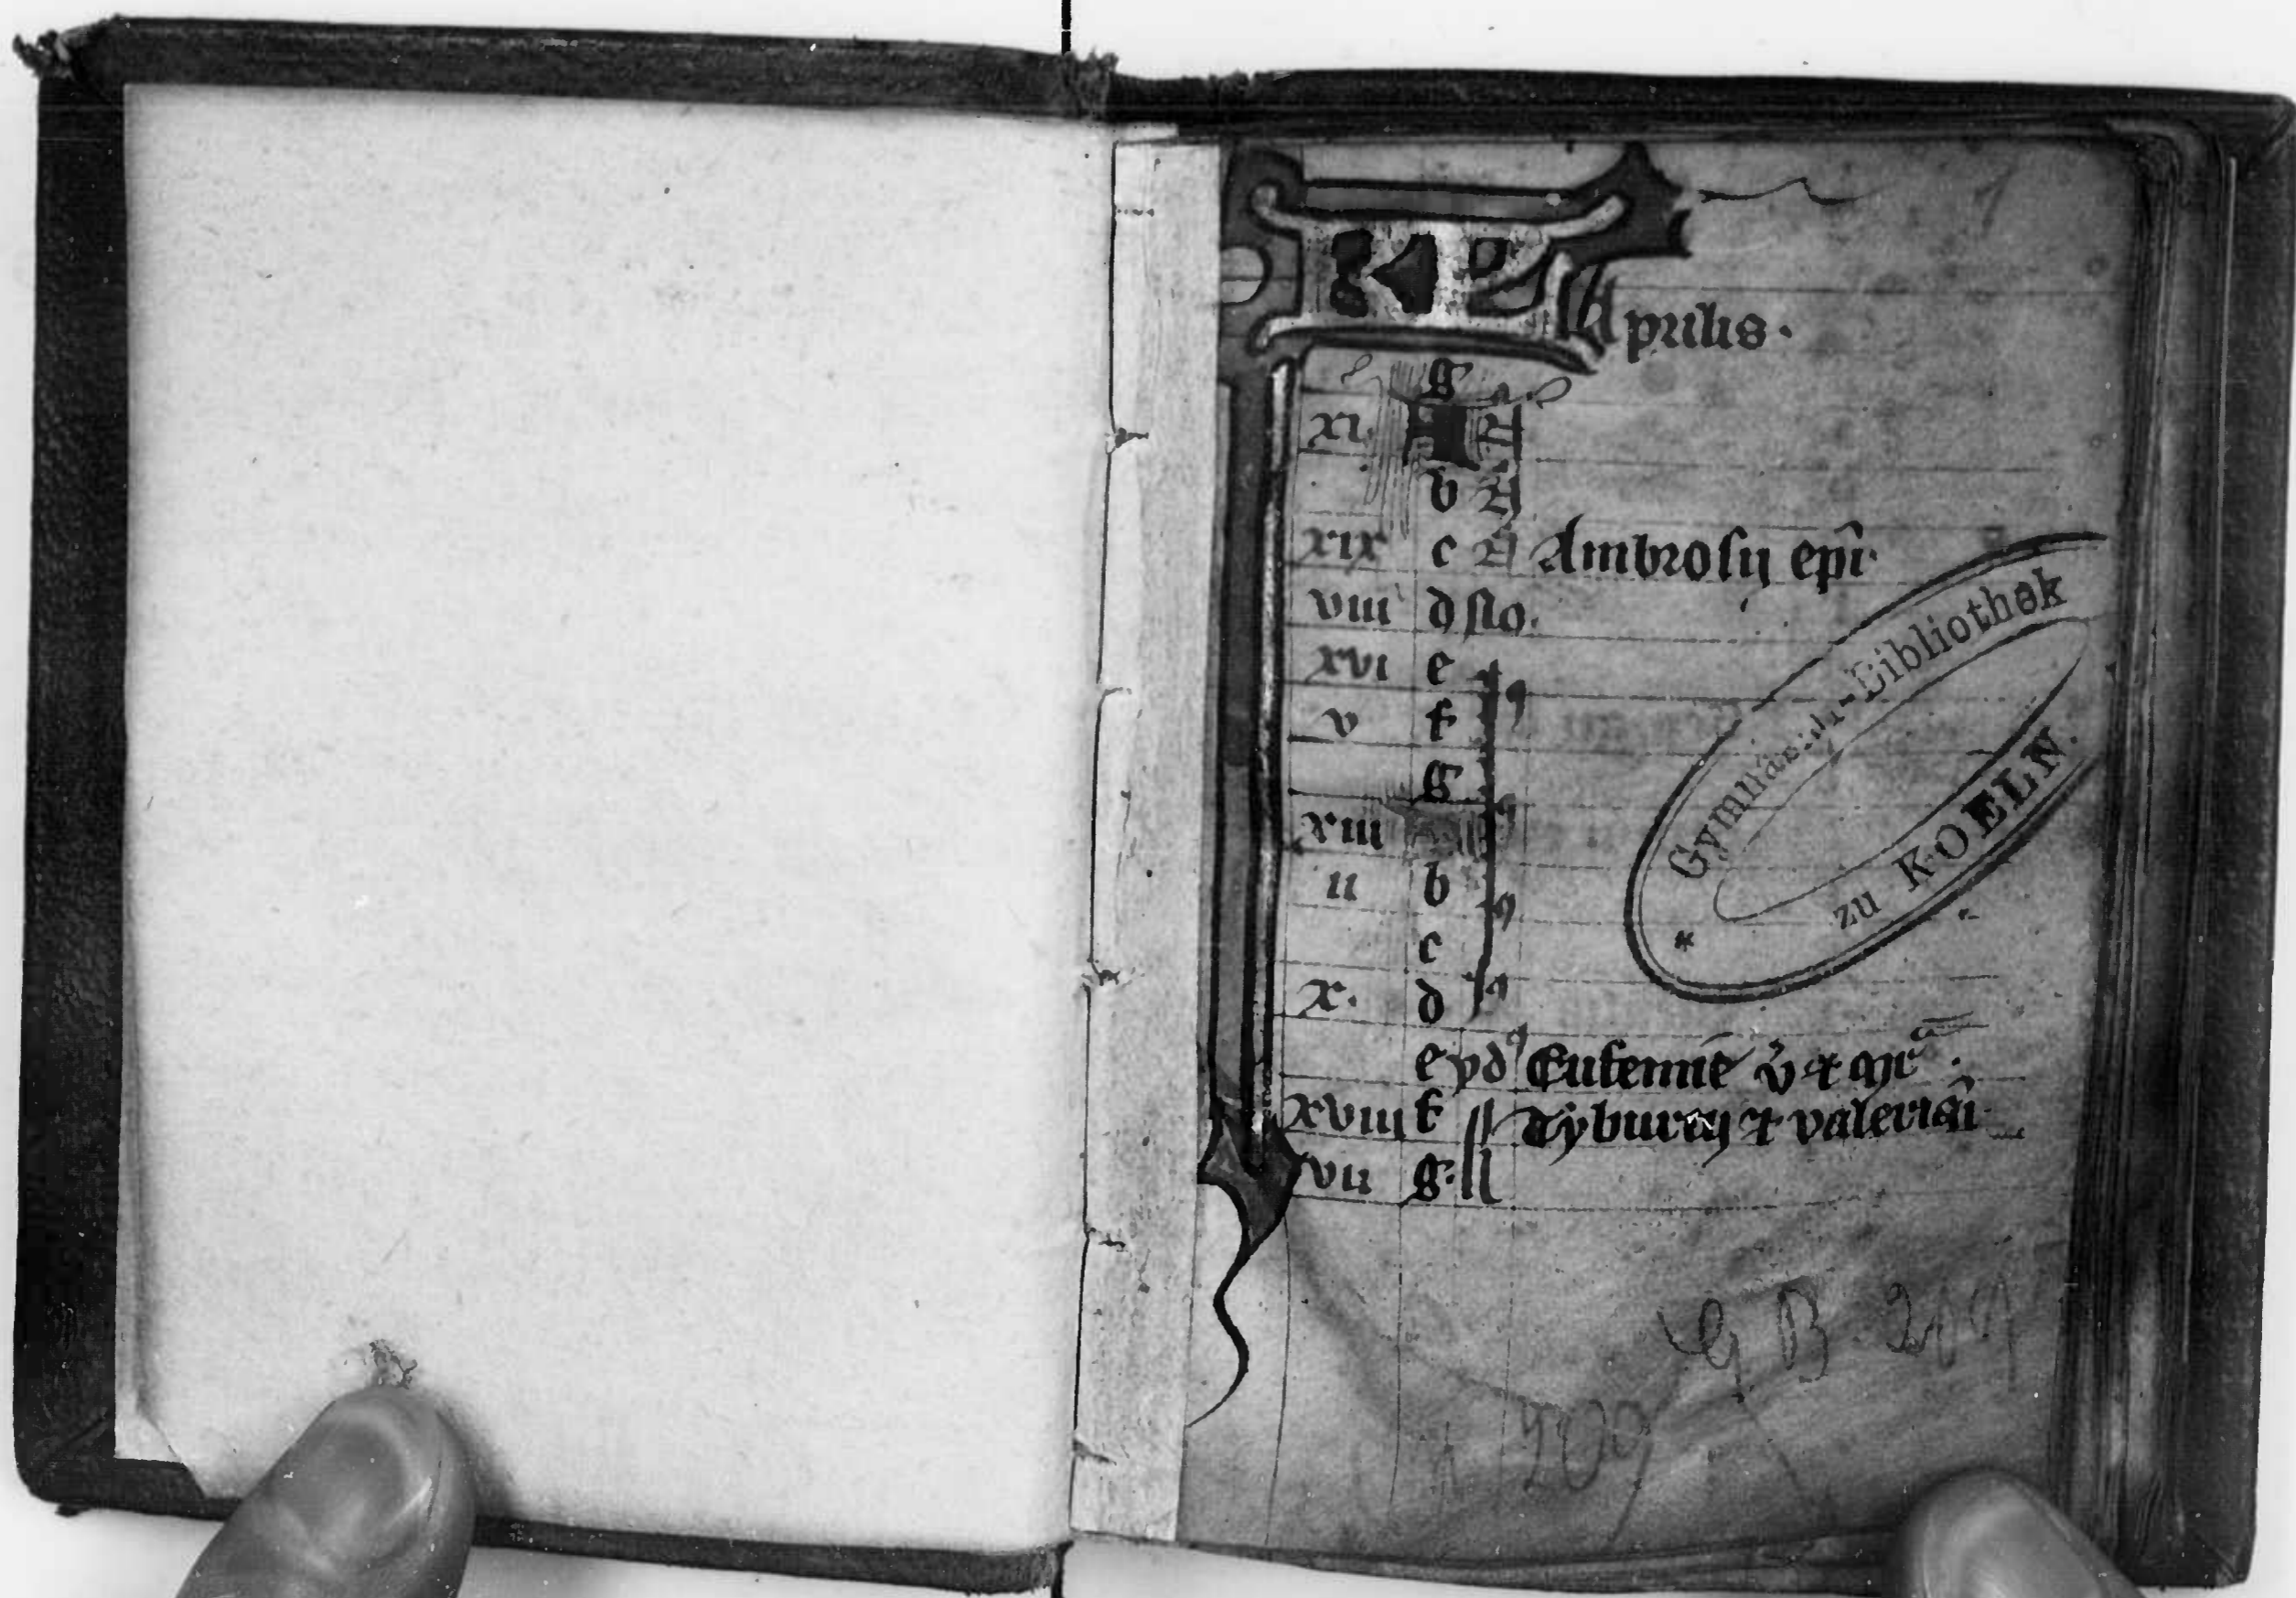 1
KL Aprilis.
g
xi A
b
xix c Ambrosij epi.
viii d no.
xvi e
v f
g
xiii
ii b
c
x. d
e yd9 Eufemie v̄ & mr̄
xviii f Tyburcij & valeriāi
vii g.
Gymnasial-Bibliothek
* zu KOELN.
G B
209